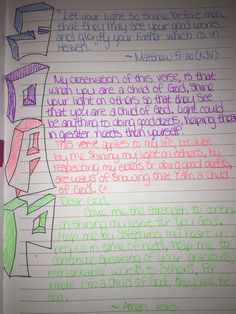 S
"Let your light so shine before men,
that they may see your good works,
and glorify your Father which is in
Heaven."
~ Matthew 5:16 (KJV)
O
My observation of this verse, is that
when you are a child of God, shine
your light on others so that they see
that you are a child of God. Light could
be anything to doing good deeds, helping those
in greater needs than yourself.
A
This verse applies to my life, because
by me shining my light on others, by
respecting my elders or doing good deeds,
are ways of showing that I am a child
of God. (:
P
Dear God,
Give me the strength to continue
on shining my light for you God.
Help me by softening my heart on
people in time of need, help me to
continue speaking of your gracious,
remarkable works to others. For
where I'm a child of God, they will be
too.
~ Amen